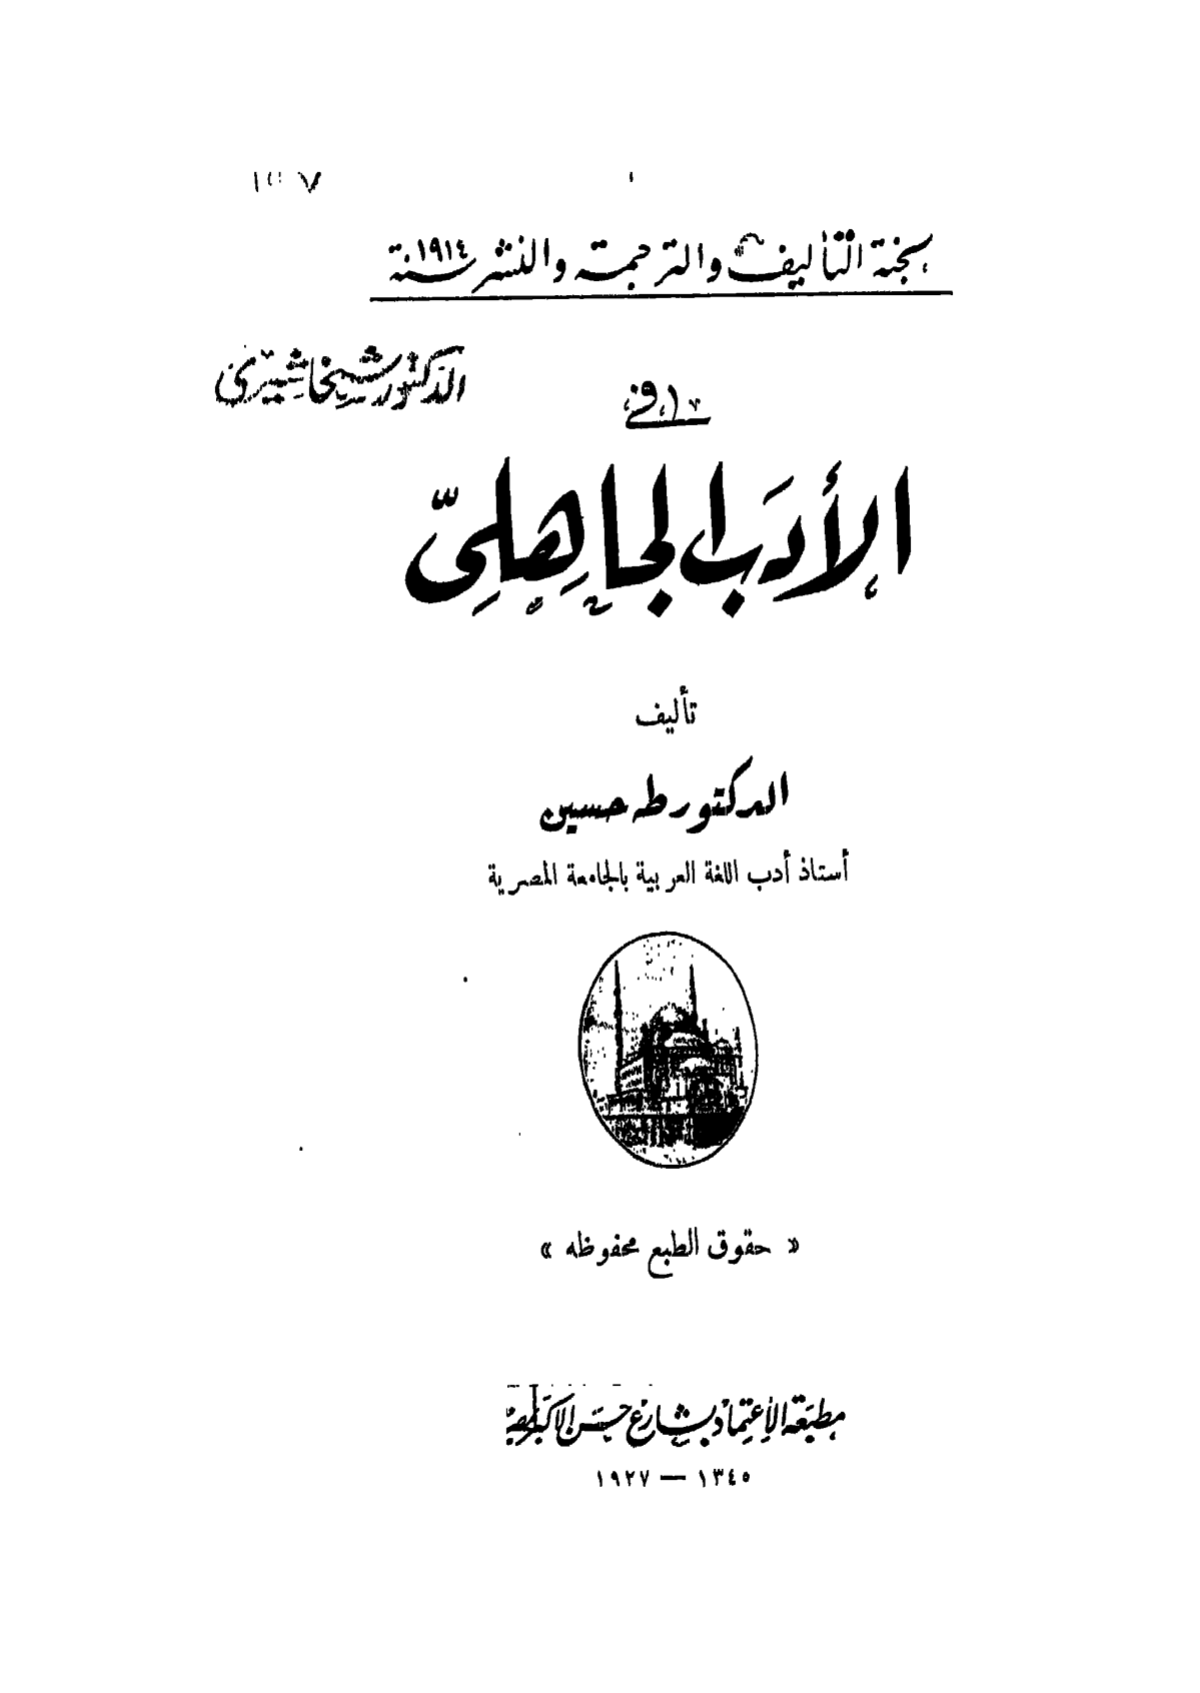 لجنة التأليف والترجمة والنشر سنة ١٩١٤
الدكتور
في
الأدب الجاهلي
تأليف
الدكتور طه حسين
أستاذ أدب اللغة العربية بالجامعة المصرية
« حقوق الطبع محفوظه »
مطبعة الاعتماد بشارع حسن الأكبر
١٣٤٥ — ١٩٢٧